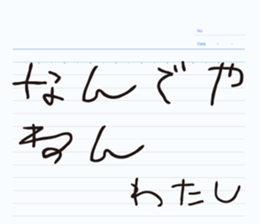 No.
Date ・ ・
なんでや
ねん
わたし